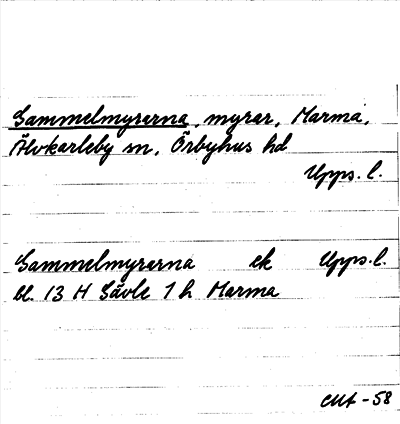 Gammelmyrarna, myrar, Marma,
Älvkarleby sn, Örbyhus hd
Upps. l.
Gammelmyrarna ek Upps. l.
bl. 13 H Gävle 1 h Marma
-58